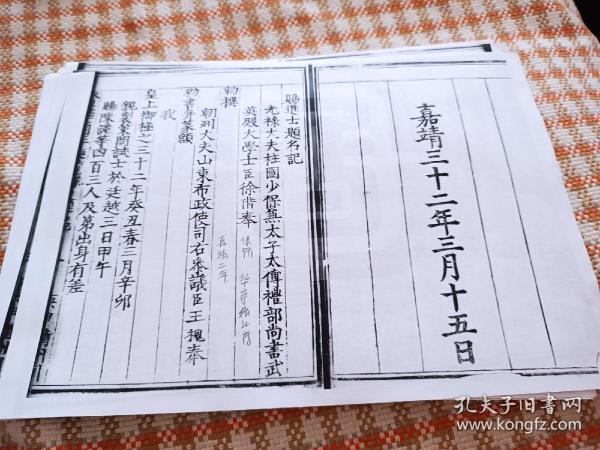 嘉靖三十二年三月十五日
賜進士題名記
光祿大夫柱國少保兼太子太傅禮部尚書武
英殿大學士臣徐階奉
勅撰
嘉靖二年
朝列大夫山東布政使司右參議臣王槐奉
勅書并篆額
我
皇上御極之三十二年癸丑春三月辛卯
親製策問試士於廷越三日甲午
賜陳謹等四百三人及第出身有差
孔夫子旧书网
www.kongfz.com